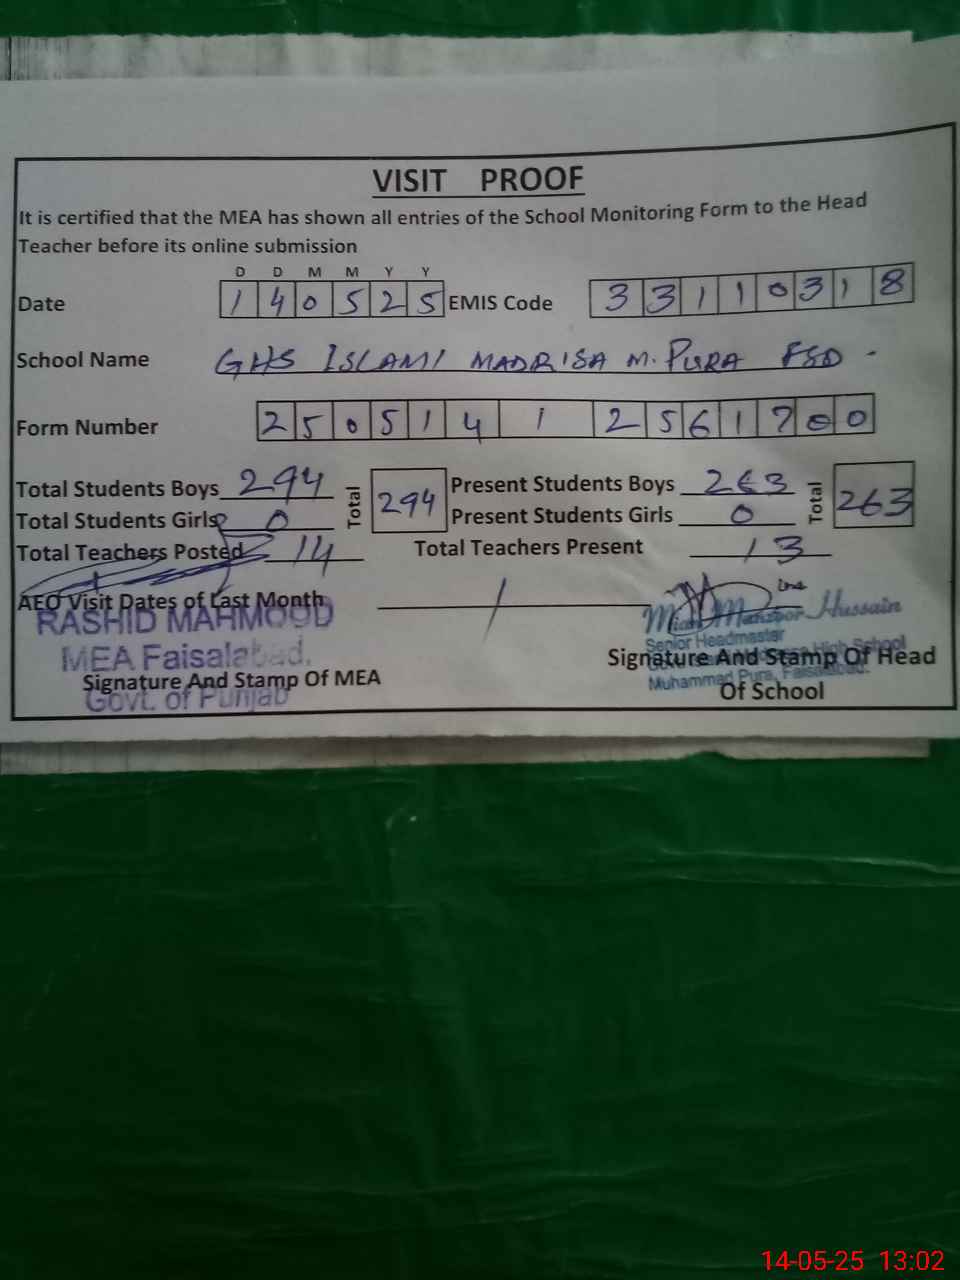 VISIT PROOF
It is certified that the MEA has shown all entries of the School Monitoring Form to the Head
Teacher before its online submission
D D M M Y Y
Date 1 4 0 5 2 5 EMIS Code 3 3 1 1 0 3 1 8
School Name GHS ISLAMI MADRISA M. PURA FSD.
Form Number 2 5 0 5 1 4 1 2 5 6 1 7 0 0
Total Students Boys 294 Total 294 Present Students Boys 263 Total 263
Total Students Girls 0 Present Students Girls 0
Total Teachers Posted 14 Total Teachers Present 13
AEO Visit Dates of Last Month /
RASHID MAHMOOD
MEA Faisalabad.
Signature And Stamp Of MEA
Govt. of Punjab
Mian Manzoor Hussain
Senior Headmaster
High School
Signature And Stamp Of Head
Muhammad Pura, Faisalabad.
Of School
14-05-25 13:02